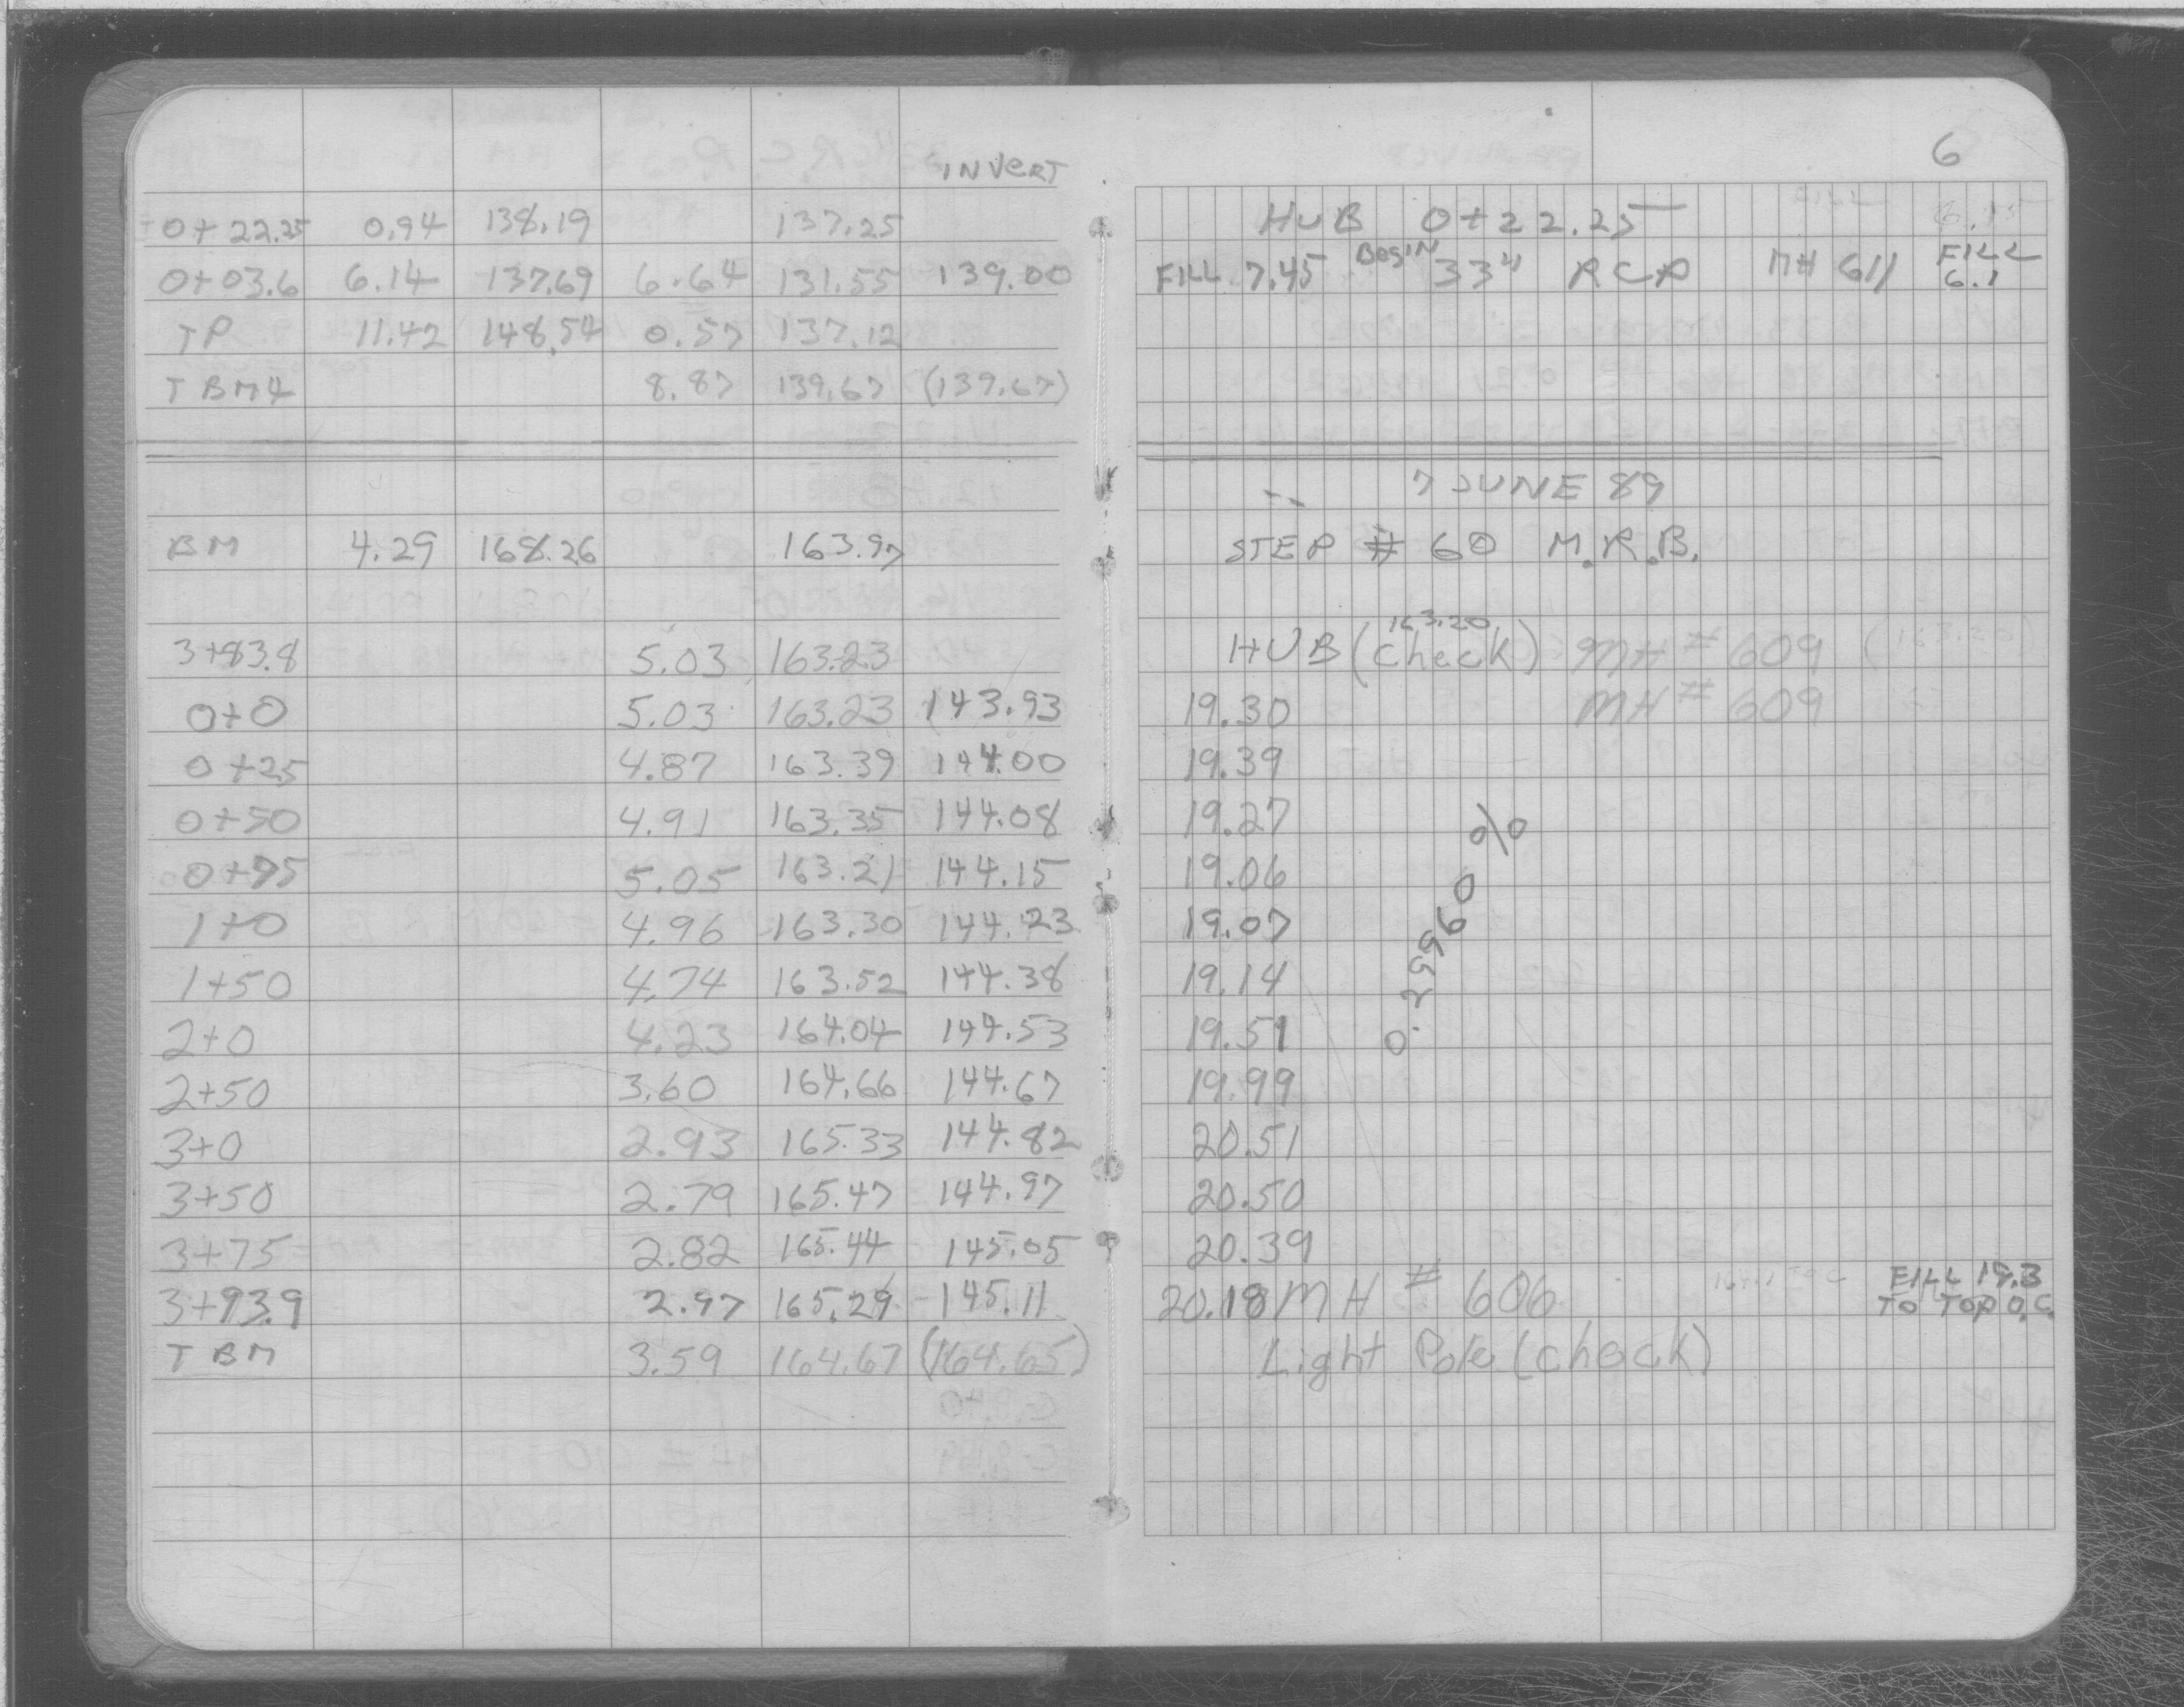 6
INVERT
0+22.25 0.94 138.19 137.25 HUB 0+22.25
0+03.6 6.14 137.69 6.64 131.55 139.00 FILL 7.45 Begin 33" RCP MH 611 FILL 6.1
TP 11.42 148.54 0.57 137.12
TBM4 8.87 139.67 (139.67)
7 JUNE 89
BM 4.29 168.26 163.97 STEP # 60 M.R.B.
3+83.8 5.03 163.23 HUB (check) 163.20 MH # 609 (163.20)
0+0 5.03 163.23 143.93 19.30 MH # 609
0+25 4.87 163.39 144.00 19.39
0+50 4.91 163.35 144.08 19.27
0+75 5.05 163.21 144.15 19.06
1+0 4.96 163.30 144.23 19.07
1+50 4.74 163.52 144.38 19.14
2+0 4.23 164.04 144.53 19.51
2+50 3.60 164.66 144.67 19.99
3+0 2.93 165.33 144.82 20.51
3+50 2.79 165.47 144.97 20.50
3+75 2.82 165.44 145.05 20.39
3+93.9 2.97 165.29 145.11 20.18 MH # 606 FILL 19.3 TO TOP O.C.
TBM 3.59 164.67 (164.65) Light Pole (check)
0.29960 %